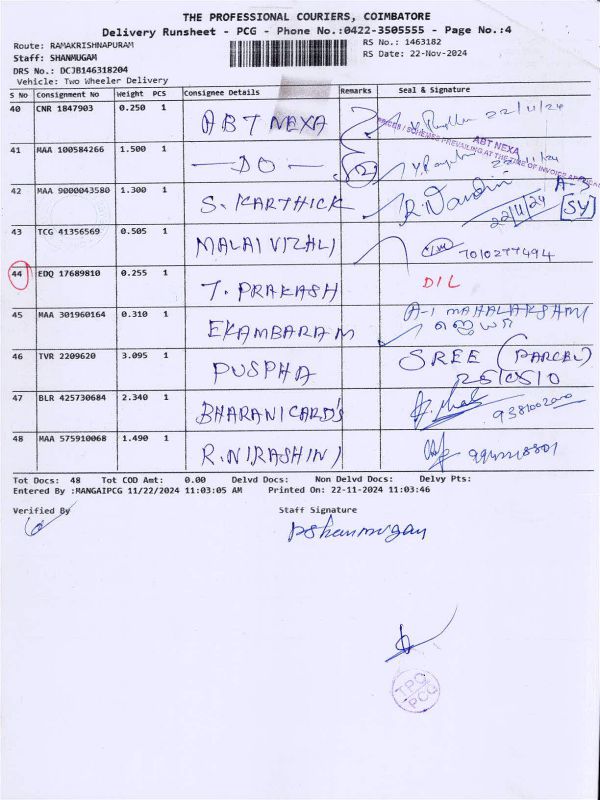 THE PROFESSIONAL COURIERS, COIMBATORE
Delivery Runsheet - PCG - Phone No.:0422-3505555 - Page No.:4
Route: RAMAKRISHNAPURAM
RS No.: 1463182
Staff: SHANMUGAM
RS Date: 22-Nov-2024
DRS No.: DCJB146318204
Vehicle: Two Wheeler Delivery
S No Consignment No Weight PCS Consignee Details Remarks Seal & Signature
40 CNR 1847903 0.250 1 ABT NEXA 22/11/24
PRICES / SCHEMES PREVAILING AT THE TIME OF INVOICE
ABT NEXA
41 MAA 100584266 1.500 1 —DO— 2 22/11/24
42 MAA 9000043580 1.300 1 S. KARTHICK 22/11/24 A-3 [SY]
43 TCG 41356569 0.505 1 MALAIVIZHLI 7010277494
44 EDQ 17689810 0.255 1 T. PRAKASH DIL
45 MAA 301960164 0.310 1 EKAMBARAM A-1 MAHALAKSHMI
46 TVR 2209620 3.095 1 PUSPHA SREE (PARCEL)
47 BLR 425730684 2.340 1 BHARANICARD'S
48 MAA 575910068 1.490 1 R.NIRASHINI
Tot Docs: 48 Tot COD Amt: 0.00 Delvd Docs: Non Delvd Docs: Delvy Pts:
Entered By :MANGAIPCG 11/22/2024 11:03:05 AM Printed On: 22-11-2024 11:03:46
Verified By Staff Signature
PShanmugam
TPC
PCG